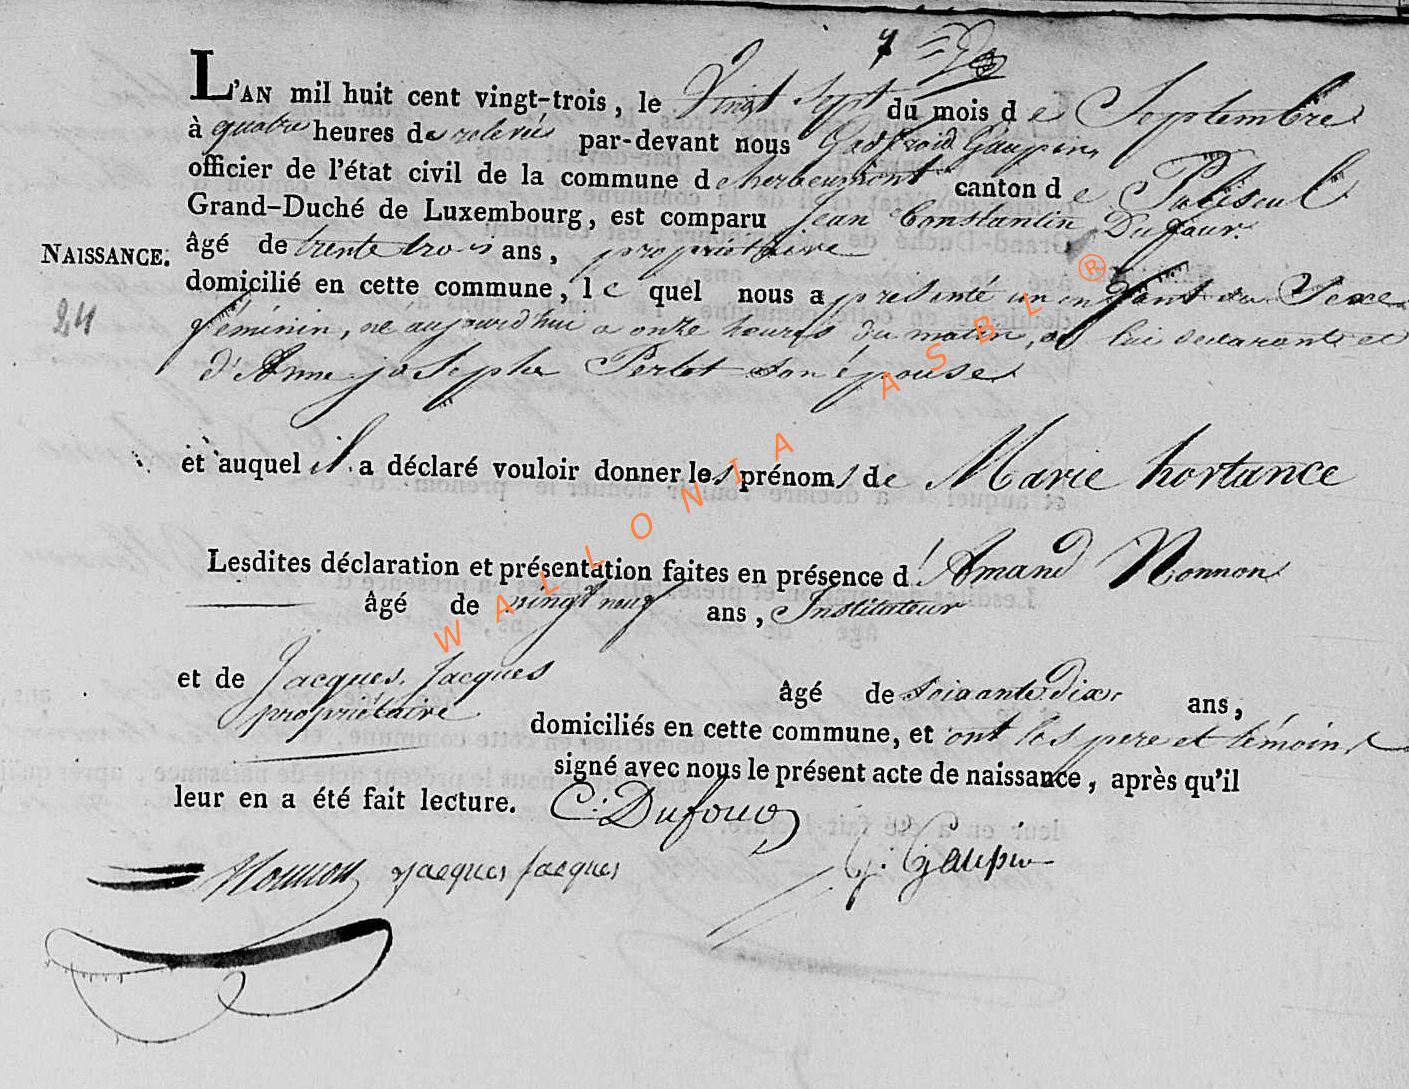 L'AN mil huit cent vingt-trois, le Vingt Sept du mois de Septembre
à quatre heures de relevée par-devant nous Godfroid Gaupin
officier de l'état civil de la commune de herbeumont canton de Paliseul
Grand-Duché de Luxembourg, est comparu Jean Constantin Dufour.
NAISSANCE. âgé de trente trois ans, propriétaire
domicilié en cette commune, le quel nous a présenté un enfant du Sexe
24 féminin, né aujourd'hui a onze heures du matin, de lui declarant et
d'Anne josephe Perlot son épouse
et auquel il a déclaré vouloir donner les prénoms de Marie hortance
Lesdites déclaration et présentation faites en présence d'Amand Nonnon
âgé de vingt neuf ans, Instituteur
et de Jacques Jacques âgé de soixante Dix ans,
propriétaire domiciliés en cette commune, et ont les pere et témoins
signé avec nous le présent acte de naissance, après qu'il
leur en a été fait lecture. C: Dufour
Nonnon Jacques Jacques G: Gaupin
WALLONIA ASBL ®